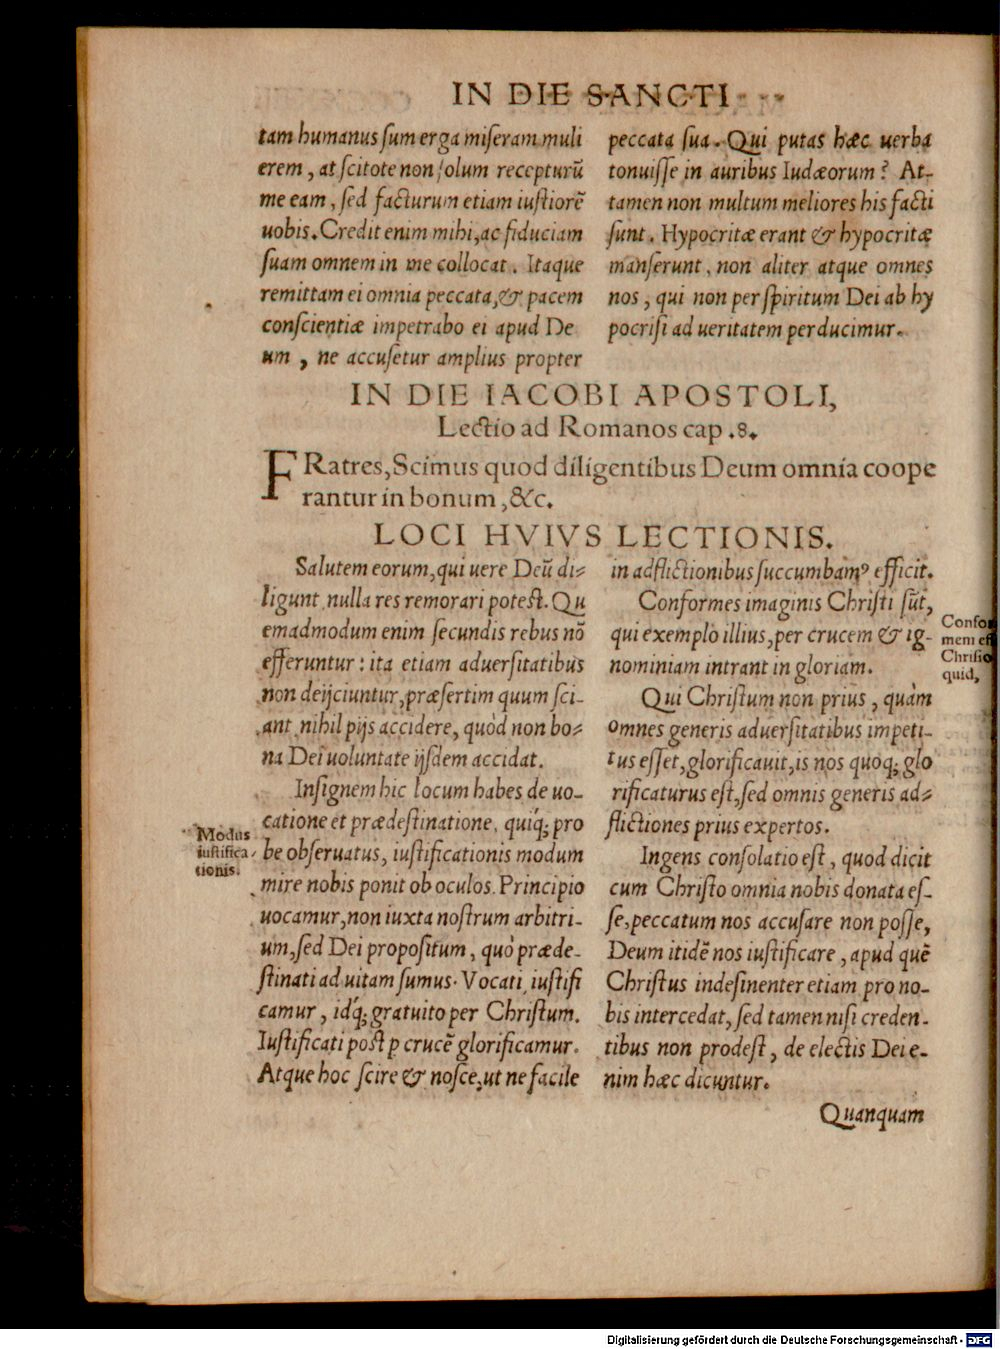 IN DIE SANCTI
tam humanus sum erga miseram muli
erem, at scitote non solum recepturũ
me eam, sed facturum etiam iustiorẽ
uobis. Credit enim mihi, ac fiduciam
suam omnem in me collocat. Itaque
remittam ei omnia peccata, & pacem
conscientiæ impetrabo ei apud De
um, ne accusetur amplius propter
peccata sua. Qui putas hæc uerba
tonuisse in auribus Iudæorum? At-
tamen non multum meliores his facti
sunt. Hypocritæ erant & hypocritæ
manserunt, non aliter atque omnes
nos, qui non per spiritum Dei ab hy
pocrisi ad ueritatem perducimur.
IN DIE IACOBI APOSTOLI,
Lectio ad Romanos cap .8.
FRatres, Scimus quod diligentibus Deum omnia coope
rantur in bonum, &c.
LOCI HVIVS LECTIONIS.
Salutem eorum, qui uere Deũ di-
ligunt nulla res remorari potest. Qu
emadmodum enim secundis rebus nõ
efferuntur: ita etiam aduersitatibus
non deijciuntur, præsertim quum sci-
ant nihil pijs accidere, quòd non bo-
na Dei uoluntate ijsdem accidat.
Insignem hic locum habes de uo-
catione et prædestinatione, quiq́; pro
be obseruatus, iustificationis modum
mire nobis ponit ob oculos. Principio
uocamur, non iuxta nostrum arbitri-
um, sed Dei propositum, quò præde-
stinati ad uitam sumus. Vocati iustifi
camur, idq́; gratuito per Christum.
Iustificati post p crucẽ glorificamur.
Atque hoc scire & nosce, ut ne facile
Modus
iustifica-
tionis.
in adflictionibus succumbamꝰ efficit.
Conformes imaginis Christi sũt,
qui exemplo illius, per crucem & ig-
nominiam intrant in gloriam.
Qui Christum non prius, quàm
omnes generis aduersitatibus impeti-
tus esset, glorificauit, is nos quoq; glo
rificaturus est, sed omnis generis ad-
flictiones prius expertos.
Ingens consolatio est, quod dicit
cum Christo omnia nobis donata es-
se, peccatum nos accusare non posse,
Deum itidẽ nos iustificare, apud quẽ
Christus indesinenter etiam pro no-
bis intercedat, sed tamen nisi creden-
tibus non prodest, de electis Dei e-
nim hæc dicuntur.
Confor
mem es
Christo
quid,
Quanquam
Digitalisierung gefördert durch die Deutsche Forschungsgemeinschaft - DFG